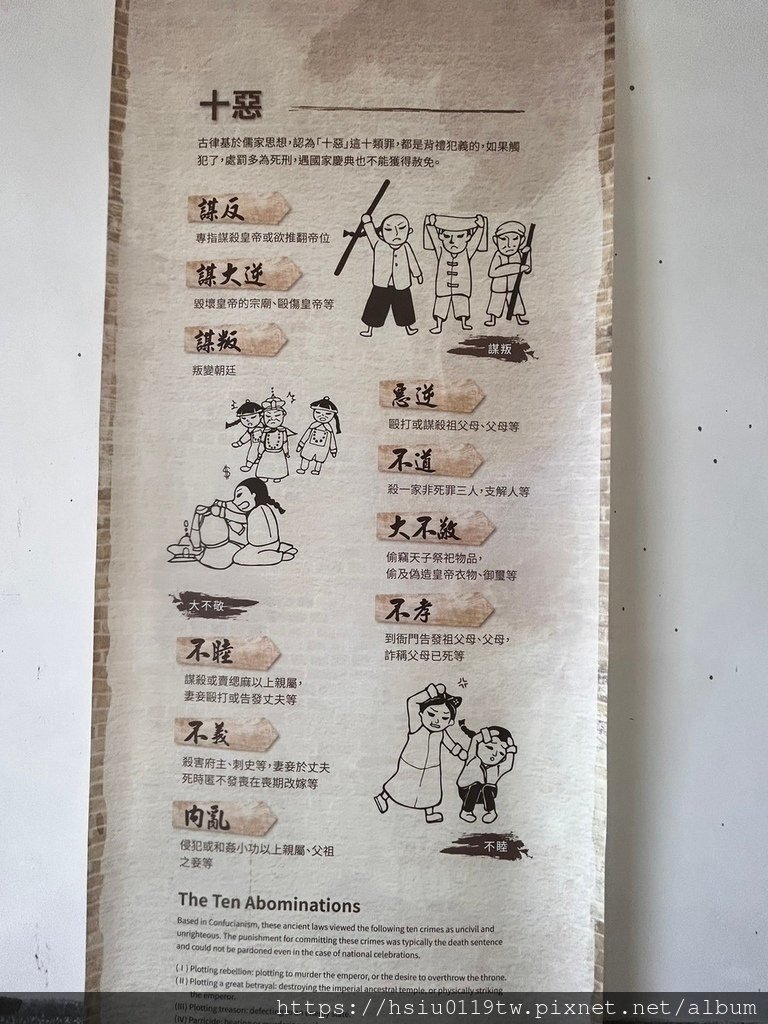 十惡
古律基於儒家思想，認為「十惡」這十類罪，都是背禮犯義的，如果觸
犯了，處罰多為死刑，遇國家慶典也不能獲得赦免。
謀反
專指謀殺皇帝或欲推翻帝位
謀大逆
毀壞皇帝的宗廟、毆傷皇帝等
謀叛
叛變朝廷
謀叛
惡逆
毆打或謀殺祖父母、父母等
不道
殺一家非死罪三人，支解人等
大不敬
偷竊天子祭祀物品，
偷及偽造皇帝衣物、御璽等
不孝
到衙門告發祖父母、父母，
詐稱父母已死等
$
大不敬
不睦
謀殺或賣緦麻以上親屬，
妻妾毆打或告發丈夫等
不義
殺害府主、刺史等，妻妾於丈夫
死時匿不發喪在喪期改嫁等
內亂
侵犯或和姦小功以上親屬、父祖
之妾等
不睦
The Ten Abominations
Based in Confucianism, these ancient laws viewed the following ten crimes as uncivil and
unrighteous. The punishment for committing these crimes was typically the death sentence
and could not be pardoned even in the case of national celebrations.
(I) Plotting rebellion: plotting to murder the emperor, or the desire to overthrow the throne.
(II) Plotting a great betrayal: destroying the imperial ancestral temple, or physically striking
the emperor.
(III) Plotting treason:
(IV) Parricide:
https://hsiu0119tw.pixnet.net/album